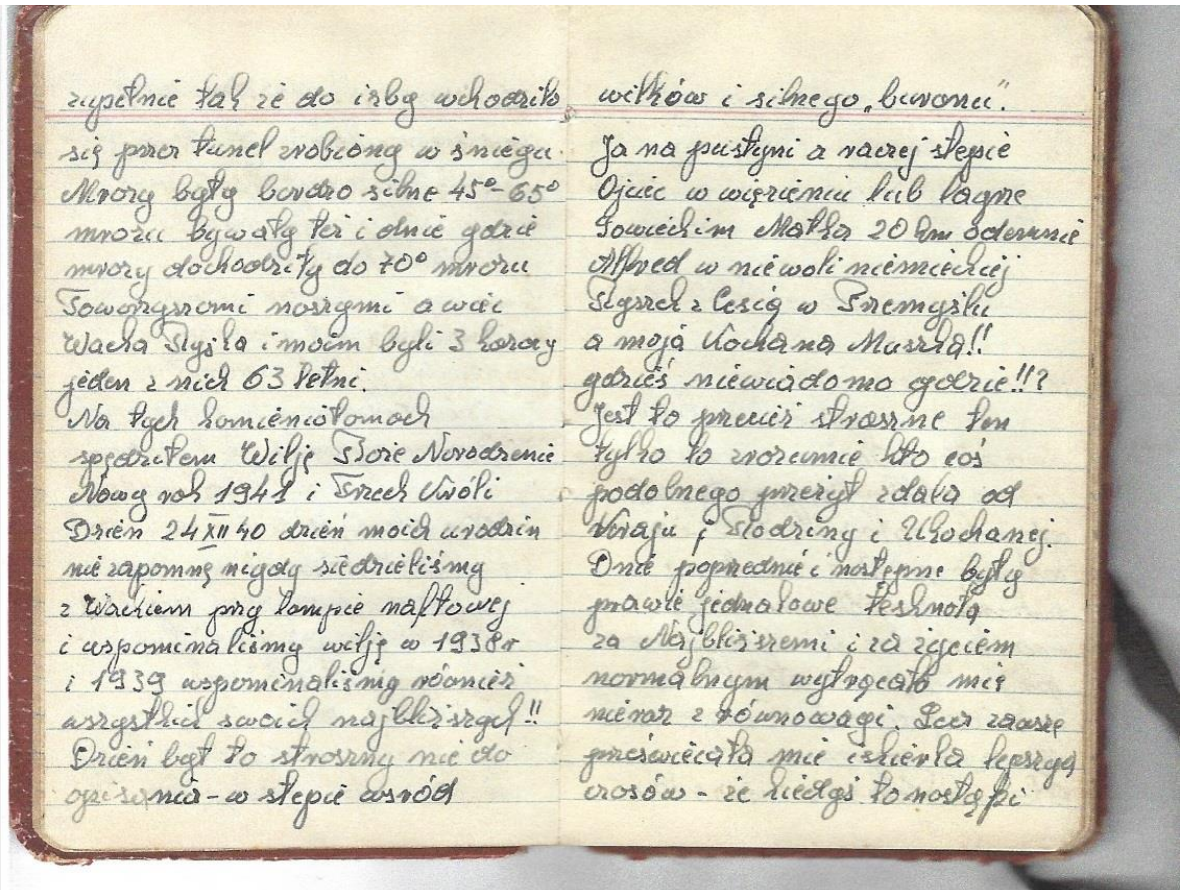 zupełnie tak że do izby wchodziło
się przez tunel zrobiony w śniegu.
Mrozy były bardzo silne 45°-65°
mrozu bywały też i dnie gdzie
mrozy dochodziły do 70° mrozu
Towarzyszami naszymi a więc
Wacka Ryśka i moim byli 3
jeden z nich 63 letni.
Na tych kamieniołomach
spędziłem Wilję Boże Narodzenie
Nowy rok 1941 i Trzech Króli
Dzień 24 XII 40 dzień moich urodzin
nie zapomnę nigdy siedzieliśmy
z Wackiem przy lampie naftowej
i wspominaliśmy wilję w 1938r
i 1939 wspominaliśmy również
wszystkich swoich najbliższych!!
Dzień był to straszny nie do
opisania - w stepie wśród
wilków i silnego „buranu".
Ja na pustyni a raczej stepie
Ojciec w więzieniu lub łagrze
Sowieckim Matka 20 km odemnie
Alfred w niewoli niemieckiej
Ryszek z Cesią w Przemyślu
a moja Kochana Muszka!!
gdzieś niewiadomo gdzie!!?
Jest to przecież straszne ten
tylko to zrozumie kto coś
podobnego przeżył zdala od
Kraju i Rodziny i Ukochanej.
Dnie poprzednie i następne były
prawie jednakowe tesknota
za Najbliższemi i za życiem
normalnym wytrącało mię
nieraz z równowagi. Lecz zawsze
przyświecała mie iskierka lepszych
czasów - że kiedyś to nastąpi